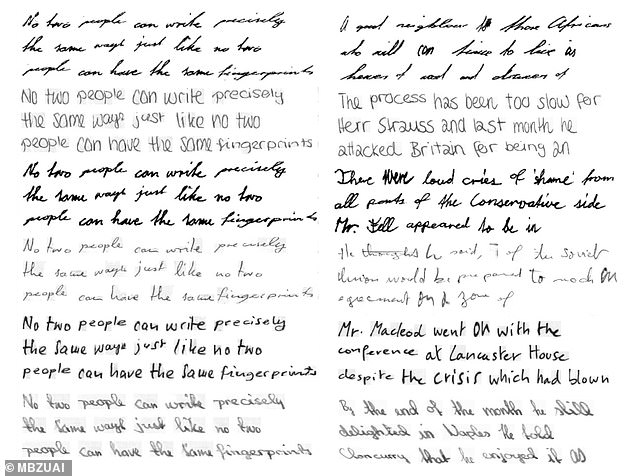 No two people can write precisely
the same ways just like no two
people can have the same fingerprints
No two people can write precisely
the same ways just like no two
people can have the same fingerprints
No two people can write precisely
the same ways just like no two
people can have the same fingerprints
No two people can write precisely
the same ways just like no two
people can have the same fingerprints
No two people can write precisely
the same ways just like no two
people can have the same fingerprints
No two people can write precisely
the same ways just like no two
people can have the same fingerprints
© MBZUAI
A good neighbour to those Africans
who will to live as
hewers of wood and drawers of
The process has been too slow for
Herr Strauss and last month he
attacked Britain for being an
There were loud cries of 'shame' from
all parts of the Conservative side
Mr. appeared to be in
He he said, of the Soviet
Union would be prepared to reach an
agreement on a zone of
Mr. Macleod went on with the
conference at Lancaster House
despite the crisis which had blown
By the end of the month he still
delighted in Naples He told
that he enjoyed it as